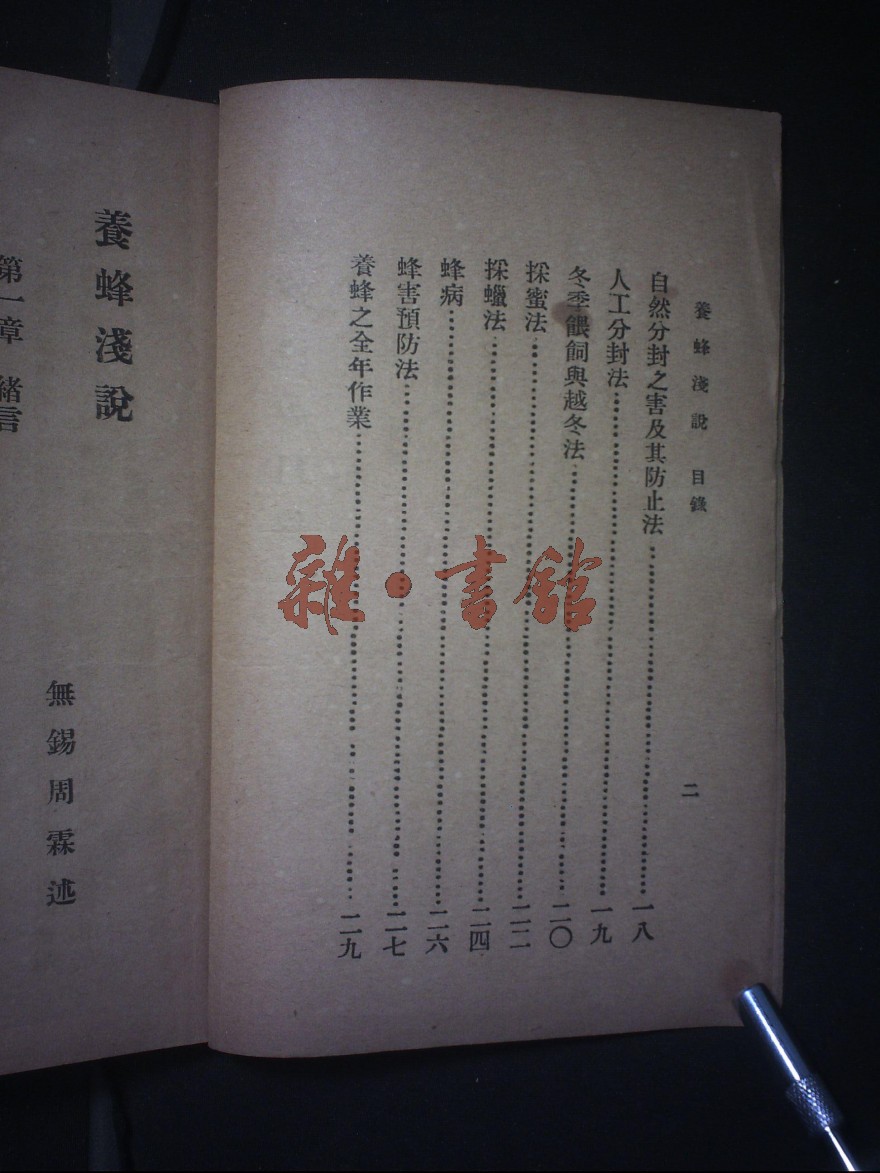 養蜂淺說 目錄
二
自然分封之害及其防止法 一八
人工分封法 一九
冬季餵飼與越冬法 二〇
採蜜法 二二
採蠟法 二四
蜂病 二六
蜂害預防法 二七
養蜂之全年作業 二九
養蜂淺說
無錫周霖述
第一章 緒言
雜·書館